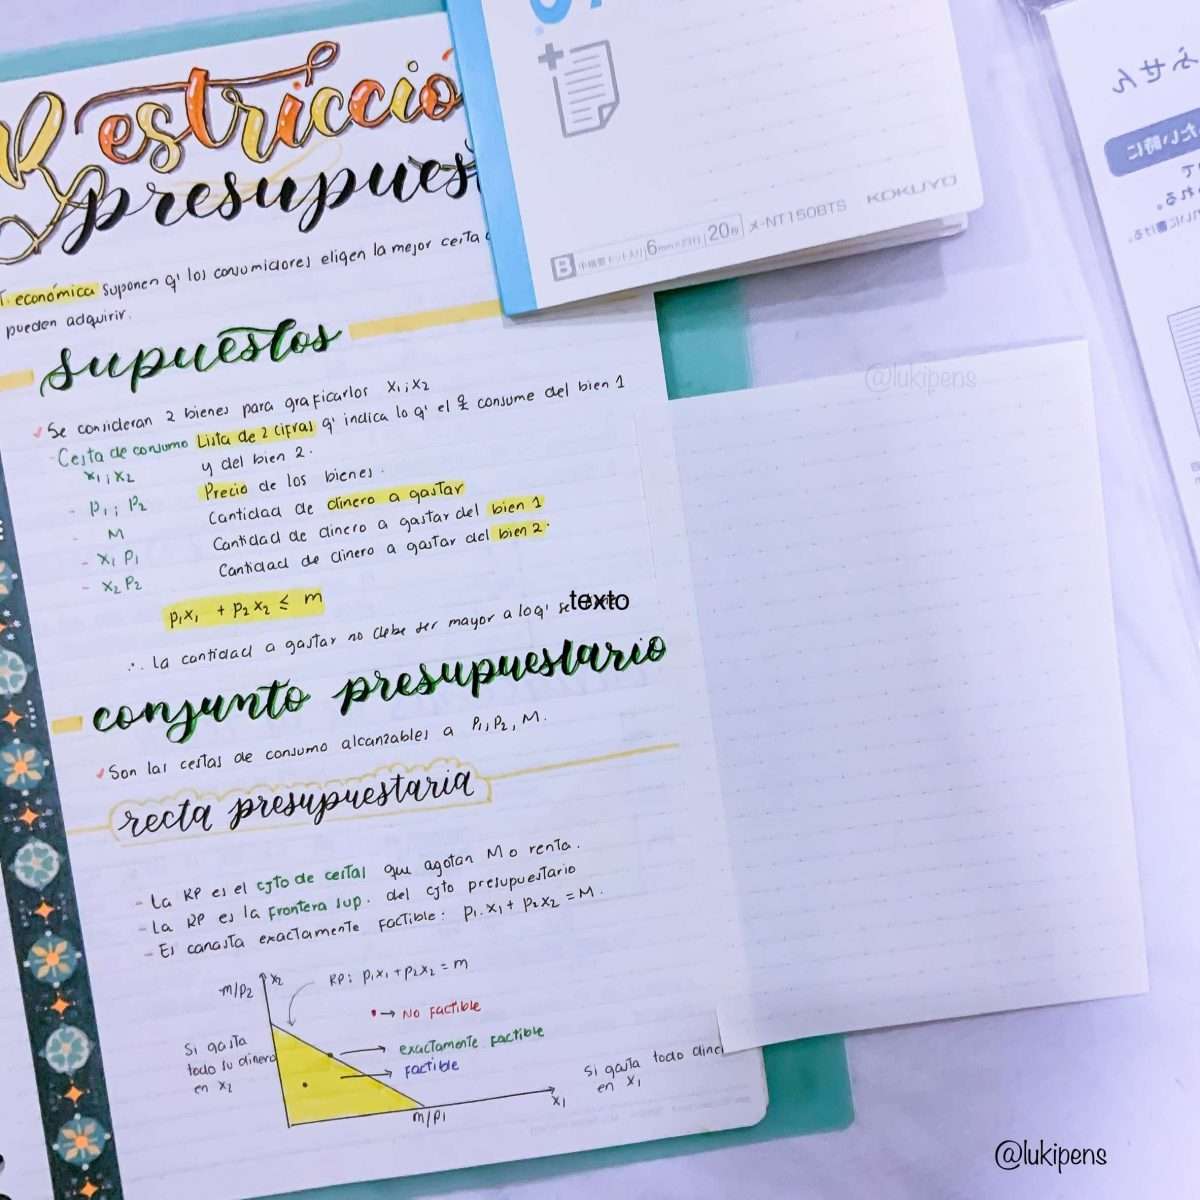 Restricció
presupuest
T. económica suponen q' los consumidores eligen la mejor cesta
pueden adquirir.
supuestos
Se consideran 2 bienes para graficarlos X₁;X₂
- Cesta de consumo Lista de 2 cifras q' indica lo q' el consume del bien 1
x₁;x₂ y del bien 2.
- P₁; P₂ Precio de los bienes.
- M Cantidad de dinero a gastar
- X₁ P₁ Cantidad de dinero a gastar del bien 1
- X₂ P₂ Cantidad de dinero a gastar del bien 2.
p₁x₁ + p₂x₂ ≤ m
∴ La cantidad a gastar no debe ser mayor a lo q' se
texto
conjunto presupuestario
Son las cestas de consumo alcanzables a P₁, P₂, M.
recta presupuestaria
- La RP es el cjto de cestas que agotan M o renta.
- La RP es la Frontera sup. del cjto presupuestario
- Es canasta exactamente factible: p₁.x₁ + p₂x₂ = M.
m/p₂
x₂
RP: p₁x₁ + p₂x₂ = m
→ No Factible
exactamente factible
Factible
Si gasta
todo su dinero
en x₂
m/p₁
x₁
Si gasta todo diner
en x₁
B
6mm×21行
20枚
メ-NT150BTS
KOKUYO
ふせん
@lukipens
@lukipens